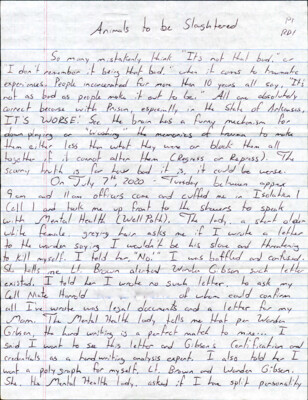 Animals to be Slaughtered
P1
RD1
So many mistakenly think "It's not that bad" or
I don't remember it being that bad" when it comes to traumatic
experiences. People incarcerated for more than 10 years all say "It's
not as bad as people make it out to be." All are absolutely
correct because with Prison, especially in the State of Arkansas,
IT'S WORSE! See the brain has a funny mechanism for
down playing or the memories of trauma to make
them either less than what they were or block them all
together if it cannot alter them (Regress or Repress). The
scary truth is for how bad it is, it could be worse.
On July 7th, 2020 Tuesday between approx
9am and 11am officers come and cuffed me in Isolation
Cell 1 and took me up front to the showers to speak
with Mental Health (WellPath). The lady, a short older
white female, greying hair asks me if I wrote a letter
to the warden saying I wouldn't be his slave and threatening
to kill myself. I told her, "No." I was baffled and confused.
She tells me Lt. Brown alerted Warden Gibson such letter
existed. I told her I wrote no such letter, to ask my
Cell Mate Harold of whom could confirm
all I've wrote was legal documents and a letter for my
Mom. The Mental Health lady tells me that per Warden
Gibson, the hand writing is a perfect match to mine. I
said I want to see this letter and Gibson's Certification and
credentials as a handwriting analysis expert. I also told her I
want a polygraph for myself, Lt. Brown and Warden Gibson.
She, the Mental Health lady, asked if I have split personality